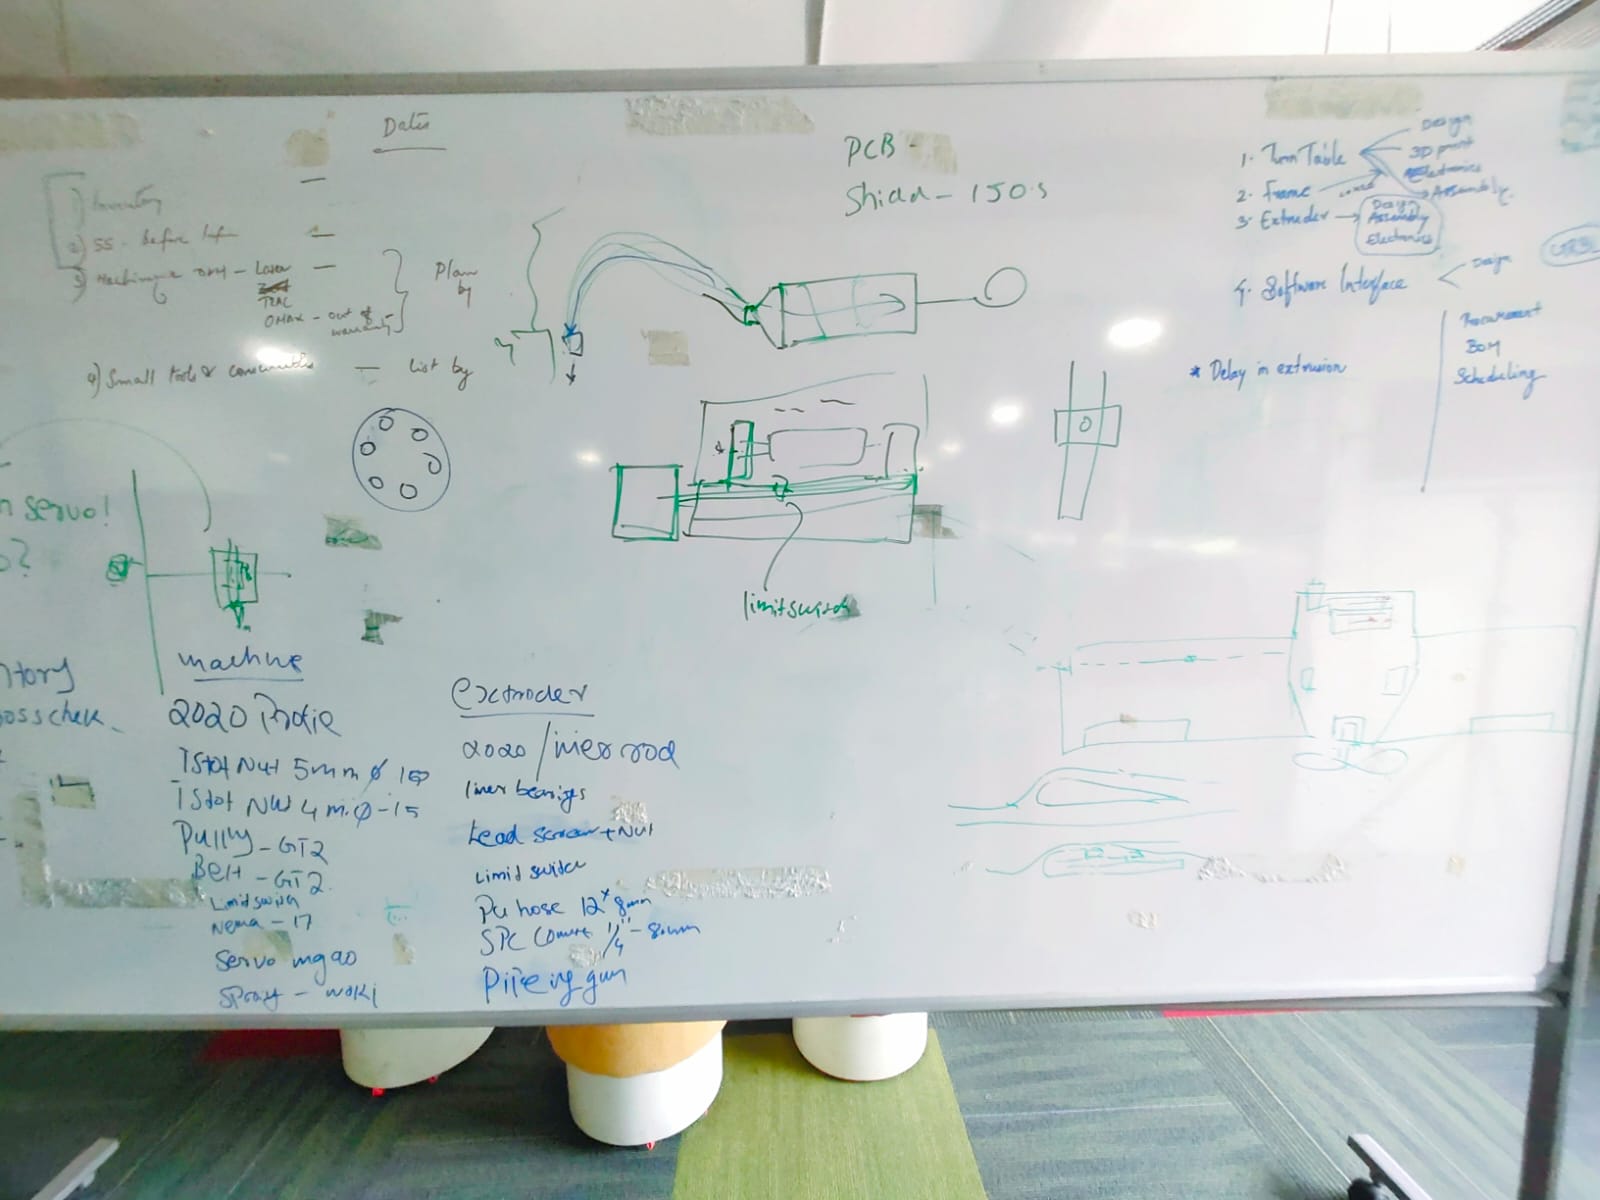 Dates
1) Inventory
2) SS - before
3) Machining - Laser
OMAX - out of
warranty
Plan
by
4) Small tools & - List by
PCB -
Shield - 150.s
1. Turn Table
Design
3D print
Electronics
Assembly
2. Frame
3. Extruder
Design
Assembly
Electronics
4. Software Interface
Design
Procurement
BOM
Scheduling
* Delay in extrusion
n servo!
?
limitswitch
ntory
osschek
machine
2020
TSlot Nut 5mm Ø
TSlot Nut 4 m.Ø - 15
Pullly - GT2
Belt - GT2.
Limitswitch
Nema - 17
Servo mg90
Spray -
extruder
2020 / rod
liner bearings
Lead screw + Nut
Limid switch
Pu hose 12 x 8mm
SPC 1/4" - 8mm
gun